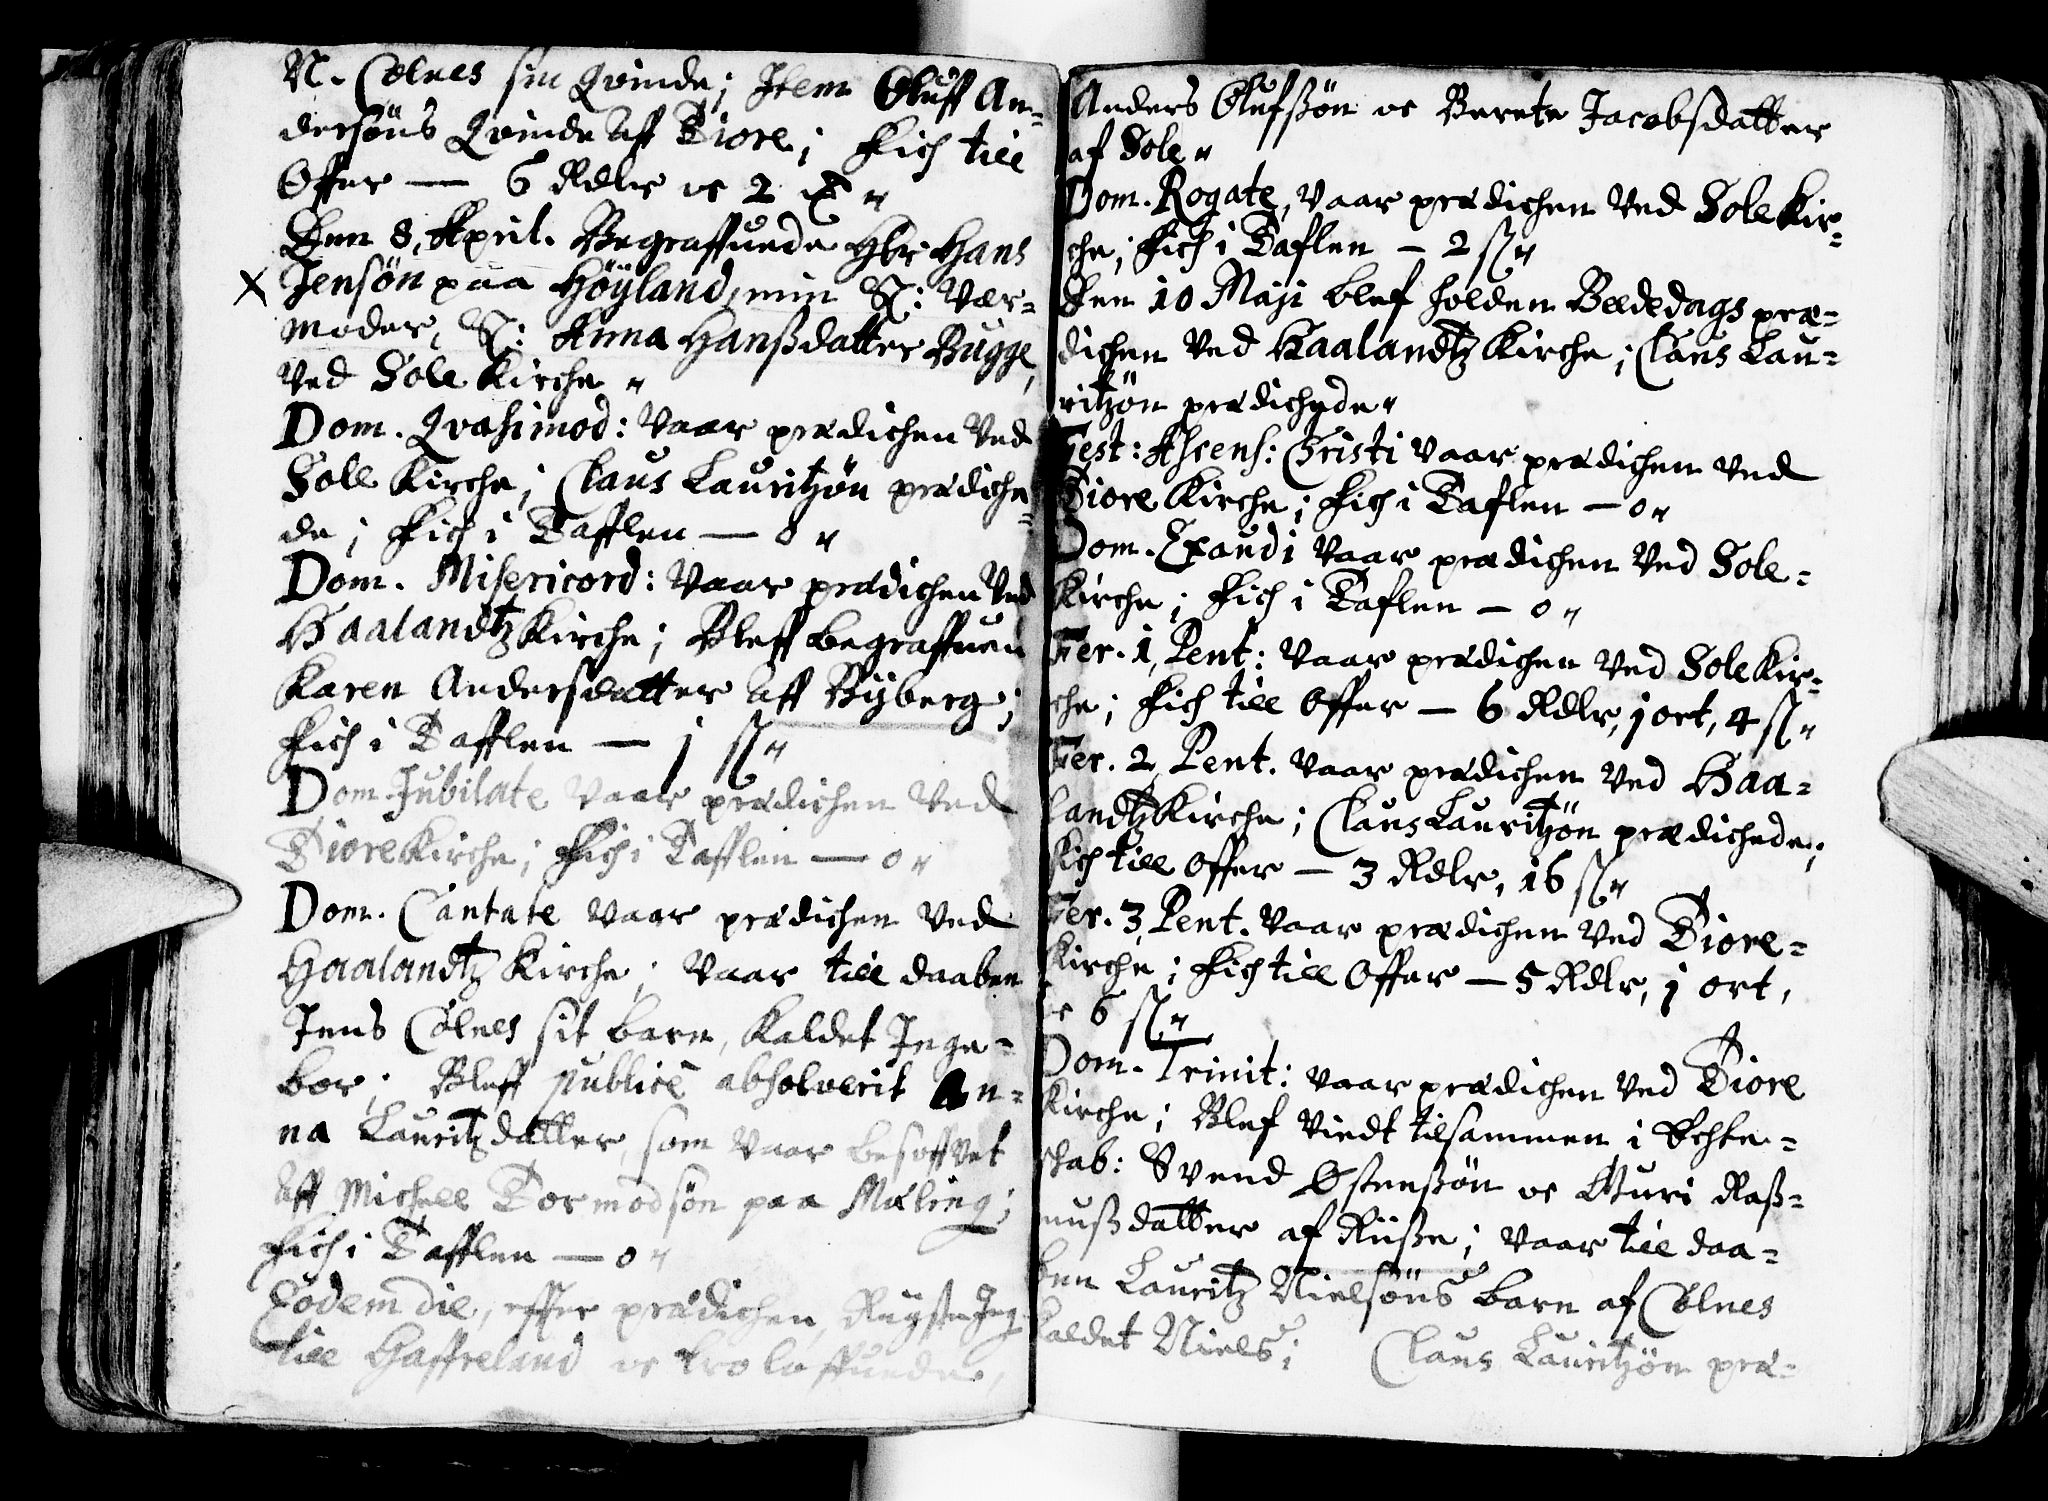 N. Cølnes sin Qvinde; Item Oluff An-
dersøns Qvinde aff Tiore; Fich till
Offer — 6 Rdlr oc 2 ℔ "
Den 8. April. Begraffuede Hbr Hans
X Jensøn paa Höyland, min S: Vær-
moder, S: Anna Hanßdatter Bugge,
ved Sole Kirche "
Dom. Qvasimod: vaar prædichen ved
Sole Kirche; Claus Lauritzøn prædiche-
de; Fich i Tafflen — 0 "
Dom. Misericord: vaar prædichen ved
Haalandtz Kirche; Bleff begraffuen
Karen Andersdatter aff Ryberg;
Fich i Tafflen — j sl "
Dom Jubilate vaar prædichen ved
Tiore Kirche; Fich i Tafflen — 0 "
Dom. Cantate vaar prædichen ved
Haalandtz Kirche; vaar till daaben
Jens Cølnes sit barn, kaldet Inge-
bor; Bleff publicè absolverit An-
na Lauritzdatter, som vaar besoffvet
aff Michell Tormodsøn paa Mæling;
Fich i Tafflen — 0 "
Eodem die, efter prædichen, Reyste Jeg
till Haffreland oc troloffuede,
Anders Olufßøn oc Berete Jacobsdatter
af Sole "
Dom. Rogate, vaar prædichen ved Sole Kir-
che; Fich i Taflen — 2 sl "
Den 10 Maji blef holden Bededags præ-
dichen ved Haalandtz Kirche; Claus Lau-
ritzøn prædichede "
Fest: Ascens: Christi vaar prædichen ved
Tiore Kirche; Fich i Taflen — 0 "
Dom. Exaudi vaar prædichen ved Sole-
Kirche; Fich i Taflen — 0 "
Fer. 1, Pent: vaar prædichen ved Sole Kir-
che; Fich till Offer — 6 Rdlr, j ort, 4 sl "
Fer. 2, Pent. vaar prædichen ved Haa-
landtz Kirche; Claus Lauritzøn prædichede;
Fich till Offer — 3 Rdlr, 16 sl "
Fer. 3, Pent. vaar prædichen ved Tiore-
Kirche; Fich till Offer — 5 Rdlr, j ort,
oc 6 sl "
Dom. Trinit: vaar prædichen ved Tiore
Kirche; Blef viedt tilsammen i Echte-
skab: Svend Østenßøn oc Guri Raß-
mußdatter af Riiße; vaar till daa-
ben Lauritz Nielsøns barn af Cølnes
kaldet Niels; Claus Lauritzøn præ-